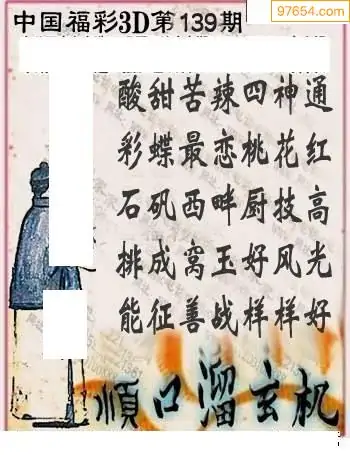 中国福彩3D第139期
97654.com
酸甜苦辣四神通
彩蝶最恋桃花红
石矶西畔厨技高
排成窝玉好风光
能征善战样样好
順口溜玄机